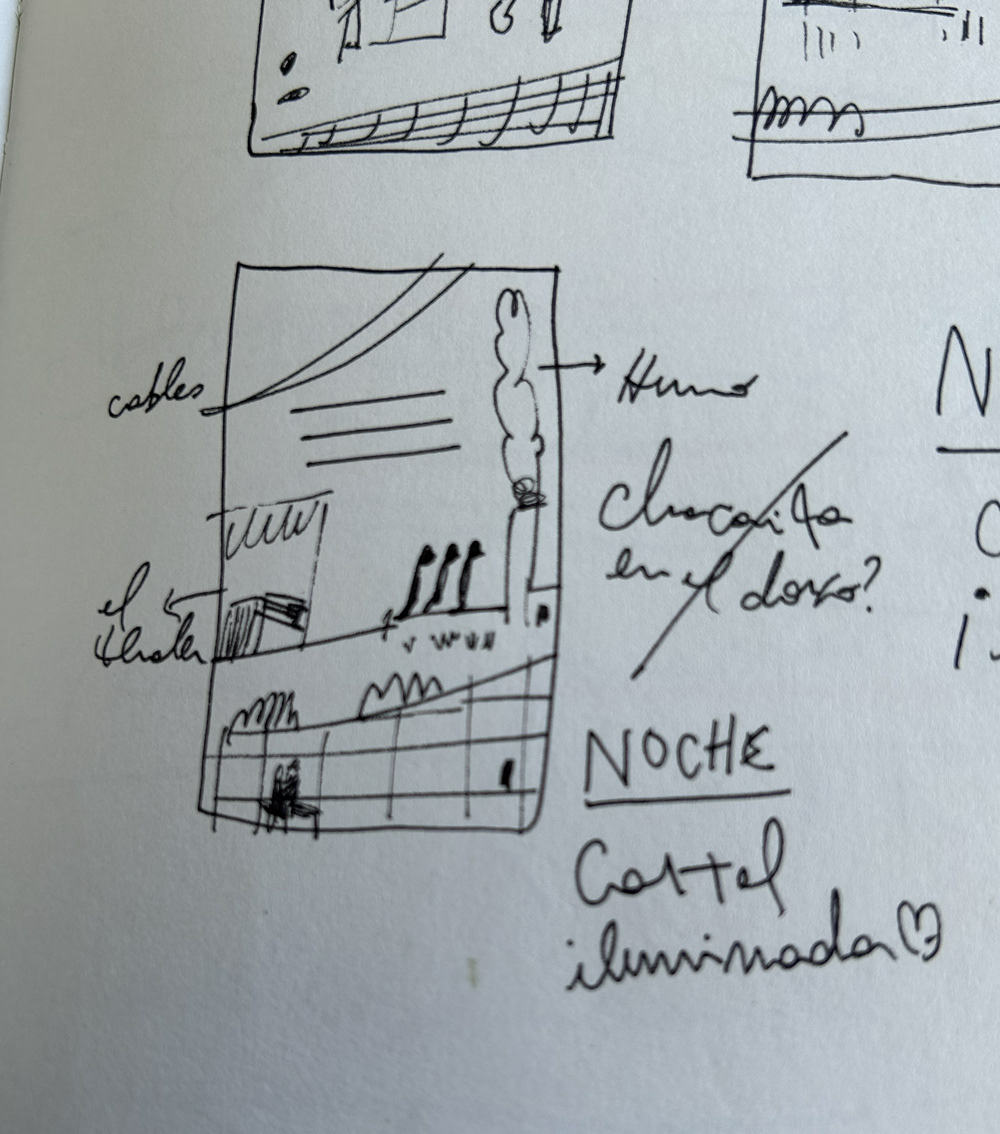 cables
Humo
Chacarita
en el dorso?
el
NOCHE
Cartel
iluminada
N